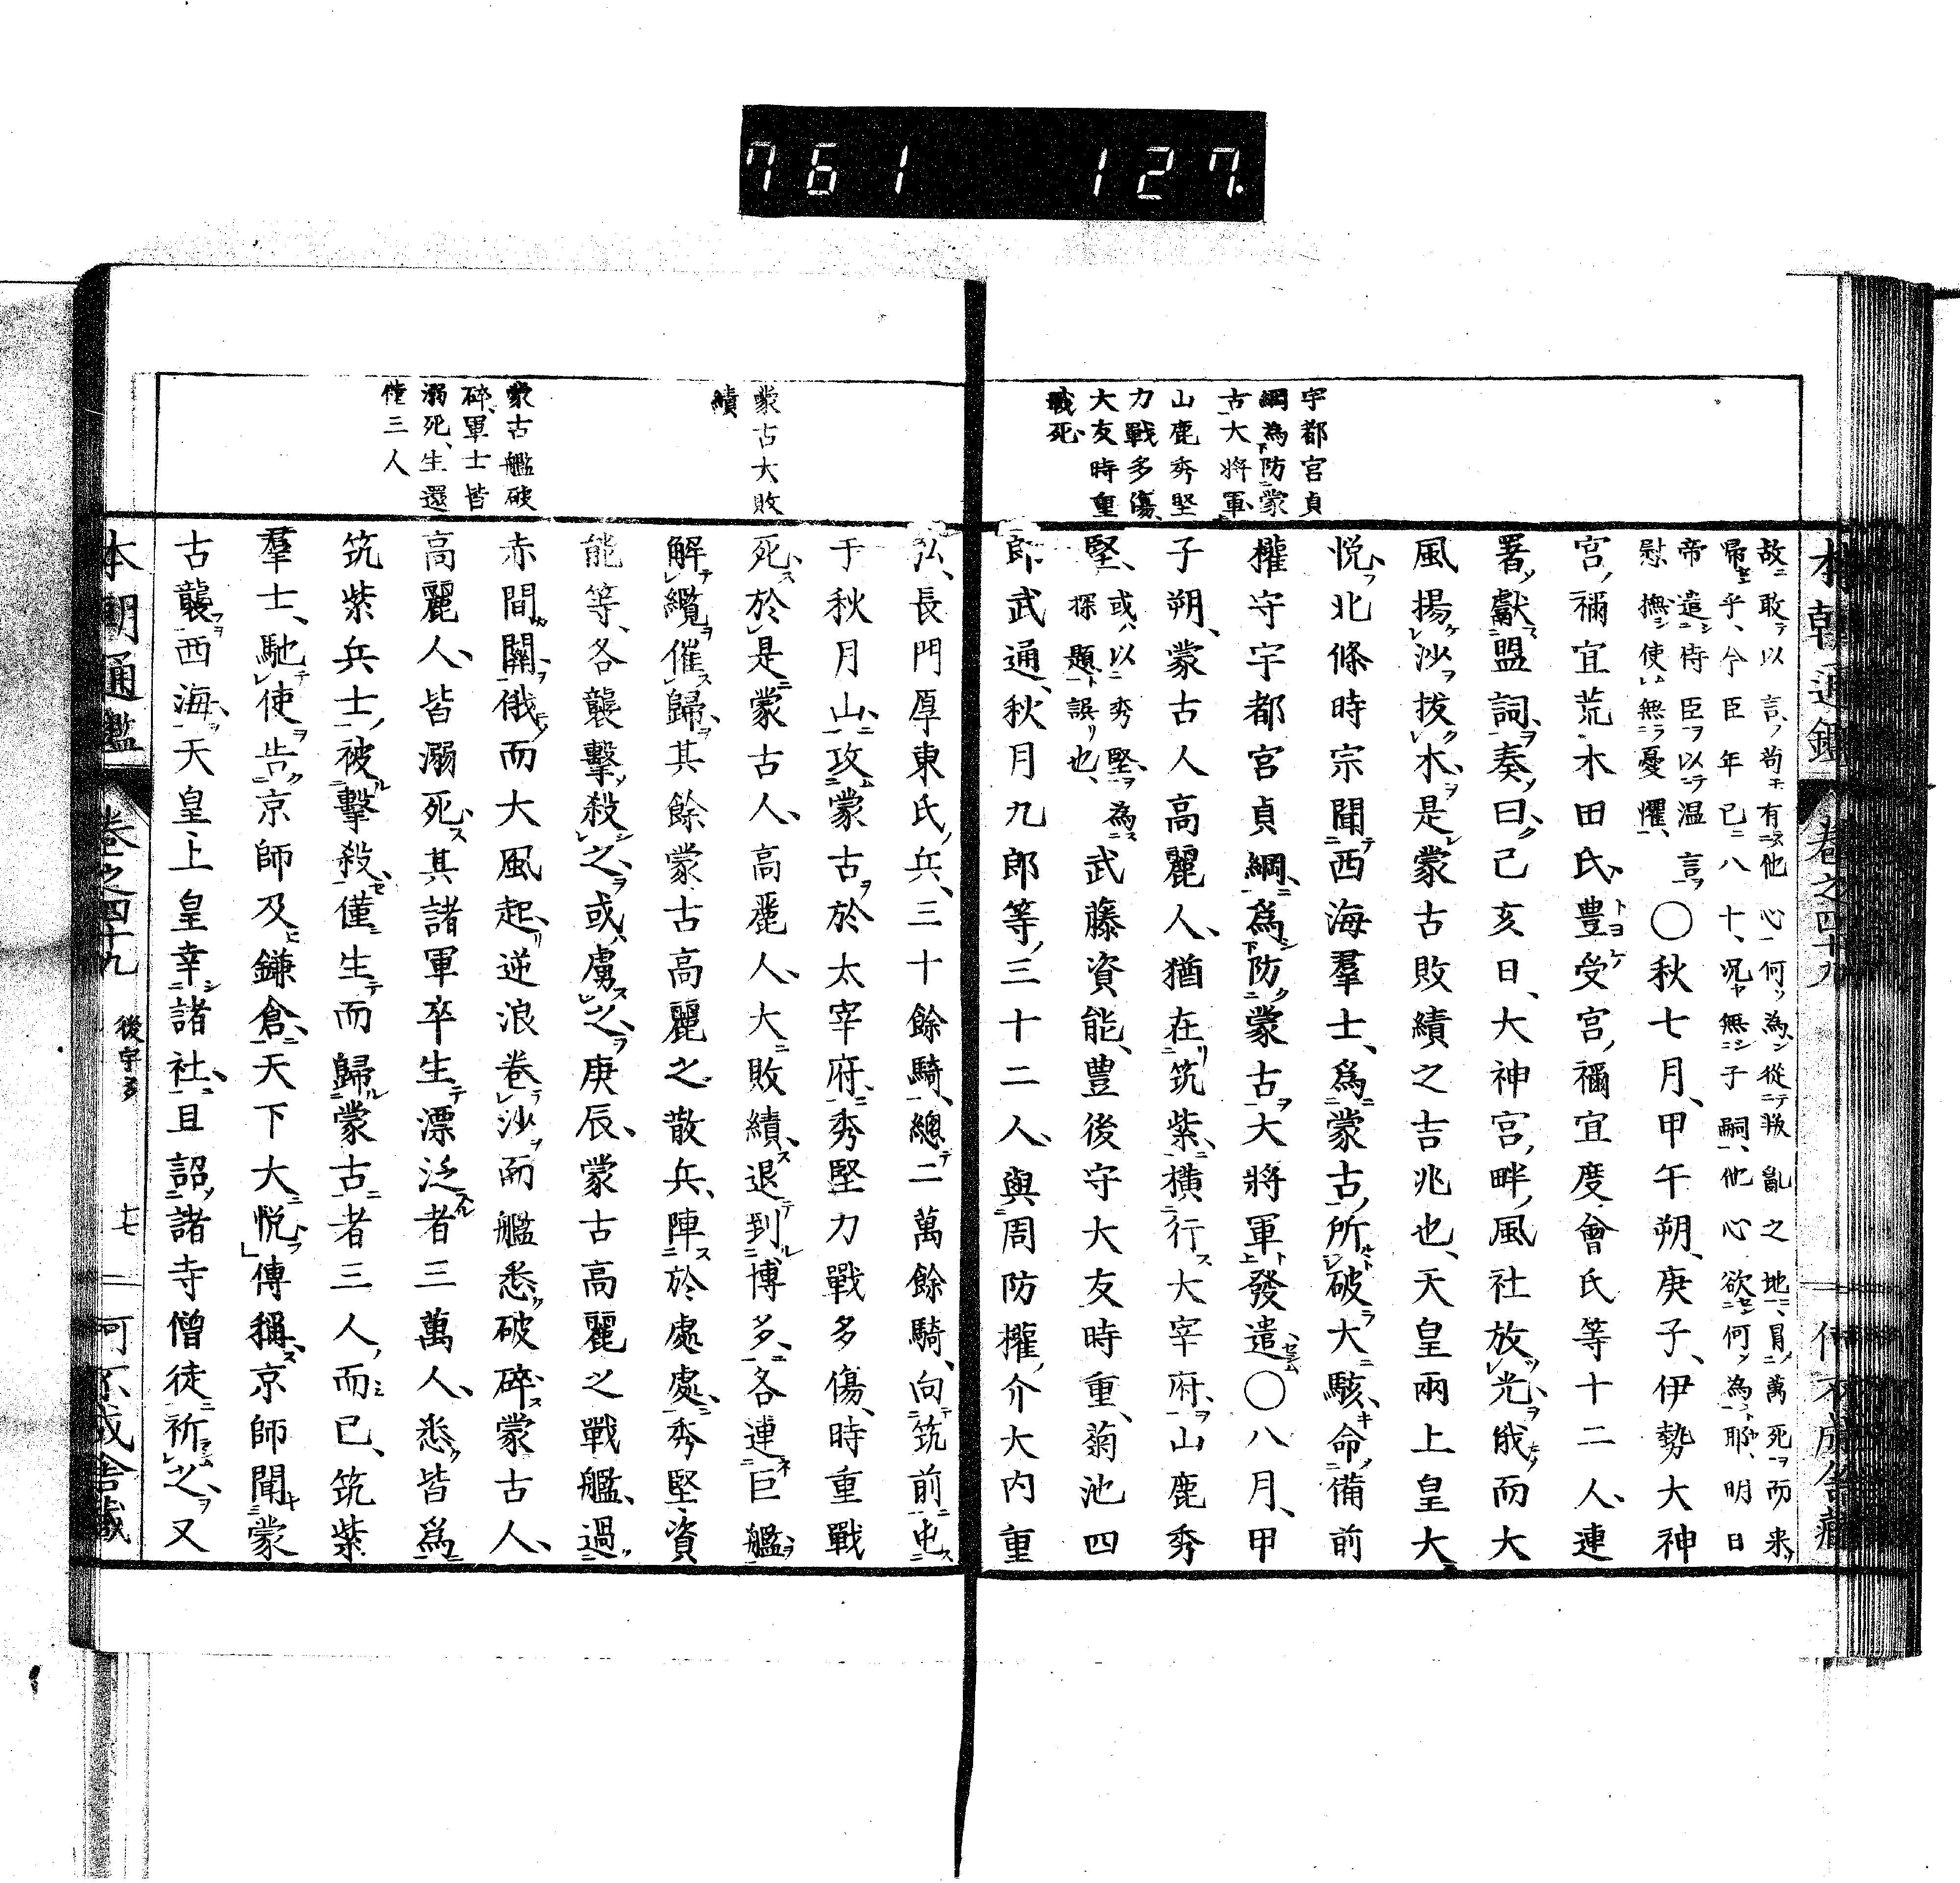 761 127.
宇都宮貞
綱為防蒙
古大將軍
山鹿秀堅
力戰多傷
大友時重
戰死
故敢以言苟有他心何為從叛亂之地冒萬死而来
帰乎今臣年已八十况無子嗣他心欲何為耶明日
帝遣侍臣以温言
慰撫使無憂懼
○秋七月甲午朔庚子伊勢大神
宮禰宜荒木田氏豊受宮禰宜度會氏等十二人連
署獻盟詞奏曰己亥日大神宮畔風社放光俄而大
風揚沙拔木是蒙古敗績之吉兆也天皇兩上皇大
悦北條時宗聞西海羣士為蒙古所破大駭命備前
權守宇都宮貞綱為防蒙古大將軍發遣○八月甲
子朔蒙古人高麗人猶在筑紫横行大宰府山鹿秀
堅
或以秀堅為
探題誤也
武藤資能豊後守大友時重菊池四
郎武通秋月九郎等三十二人與周防權介大内重
弘長門厚東氏兵三十餘騎總二萬餘騎向筑前屯
于秋月山攻蒙古於太宰府秀堅力戰多傷時重戰
死於是蒙古人高麗人大敗績退到博多各連巨艦
解纜催歸其餘蒙古高麗之散兵陣於處處秀堅資
能等各襲擊殺之或虜之庚辰蒙古高麗之戰艦過
赤間關俄而大風起逆浪卷沙而艦悉破碎蒙古人
高麗人皆溺死其諸軍卒生漂泛者三萬人悉皆為
筑紫兵士被擊殺僅生而歸蒙古者三人而已筑紫
羣士馳使告京師及鎌倉天下大悦傳稱京師聞蒙
古襲西海天皇上皇幸諸社且詔諸寺僧徒祈之又
蒙古大敗
績
蒙古艦破
碎軍士皆
溺死生還
僅三人
本朝通鑑 卷之四十九 後宇多 十七